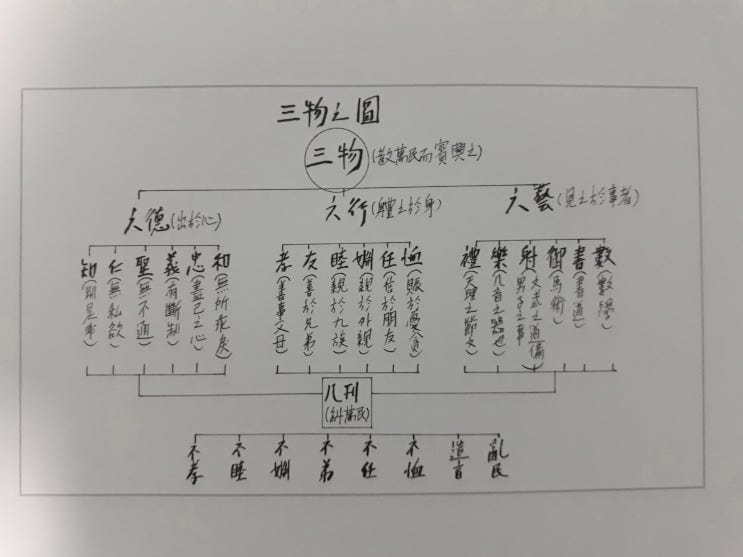 三物之圖
三物(教萬民而賓興之)
六德(出於心)
六行(體之於身)
六藝(見之於事者)
知(別是非)
仁(無私欲)
聖(無不通)
義(有斷制)
忠(盡己之心)
和(無所乖戾)
孝(善事父母)
友(善於兄弟)
睦(親於九族)
婣(親於外親)
任(信於朋友)
恤(賑於憂貧)
禮(天理之節文)
樂(八音之器也)
射(文武之道備
男子之事)
御(馬術)
書(書道)
數(數學)
八刑
(糾萬民)
不孝
不睦
不婣
不弟
不任
不恤
造言
亂民